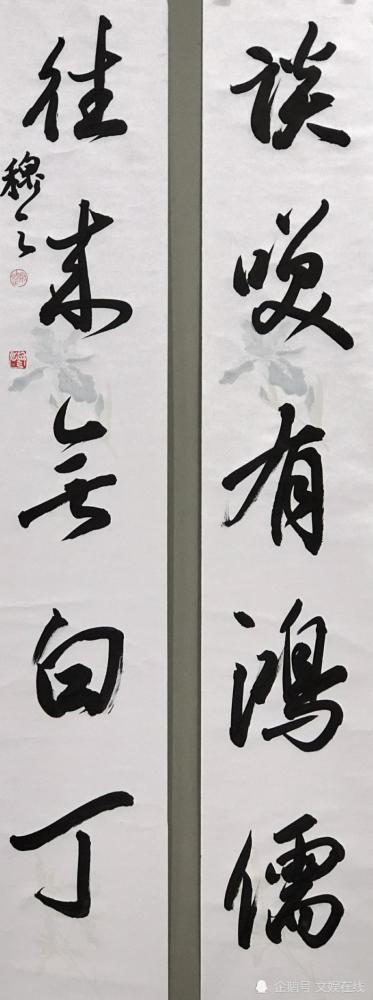 談咲有鴻儒
往来無白丁
穆之
企鹅号 文娱在线